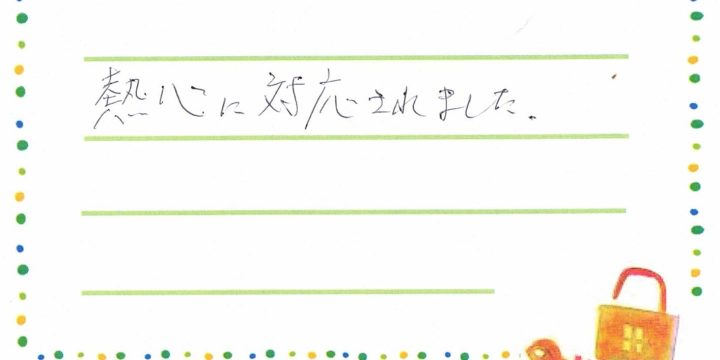 熱心に対応されました。